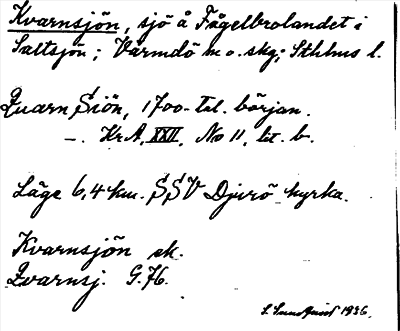 Kvarnsjön, sjö å Fågelbrolandet i
Saltsjön; Värmdö h. o. skg; Sthlms l.
Quarn Siön, 1700-tal. början.
—. Kr A, XXII, No 11, lit. b.
Läge 6,4 km. SSV Djurö kyrka.
Kvarnsjön sk.
Qvarnsj. G. 76.
S. Sundquist 1936.